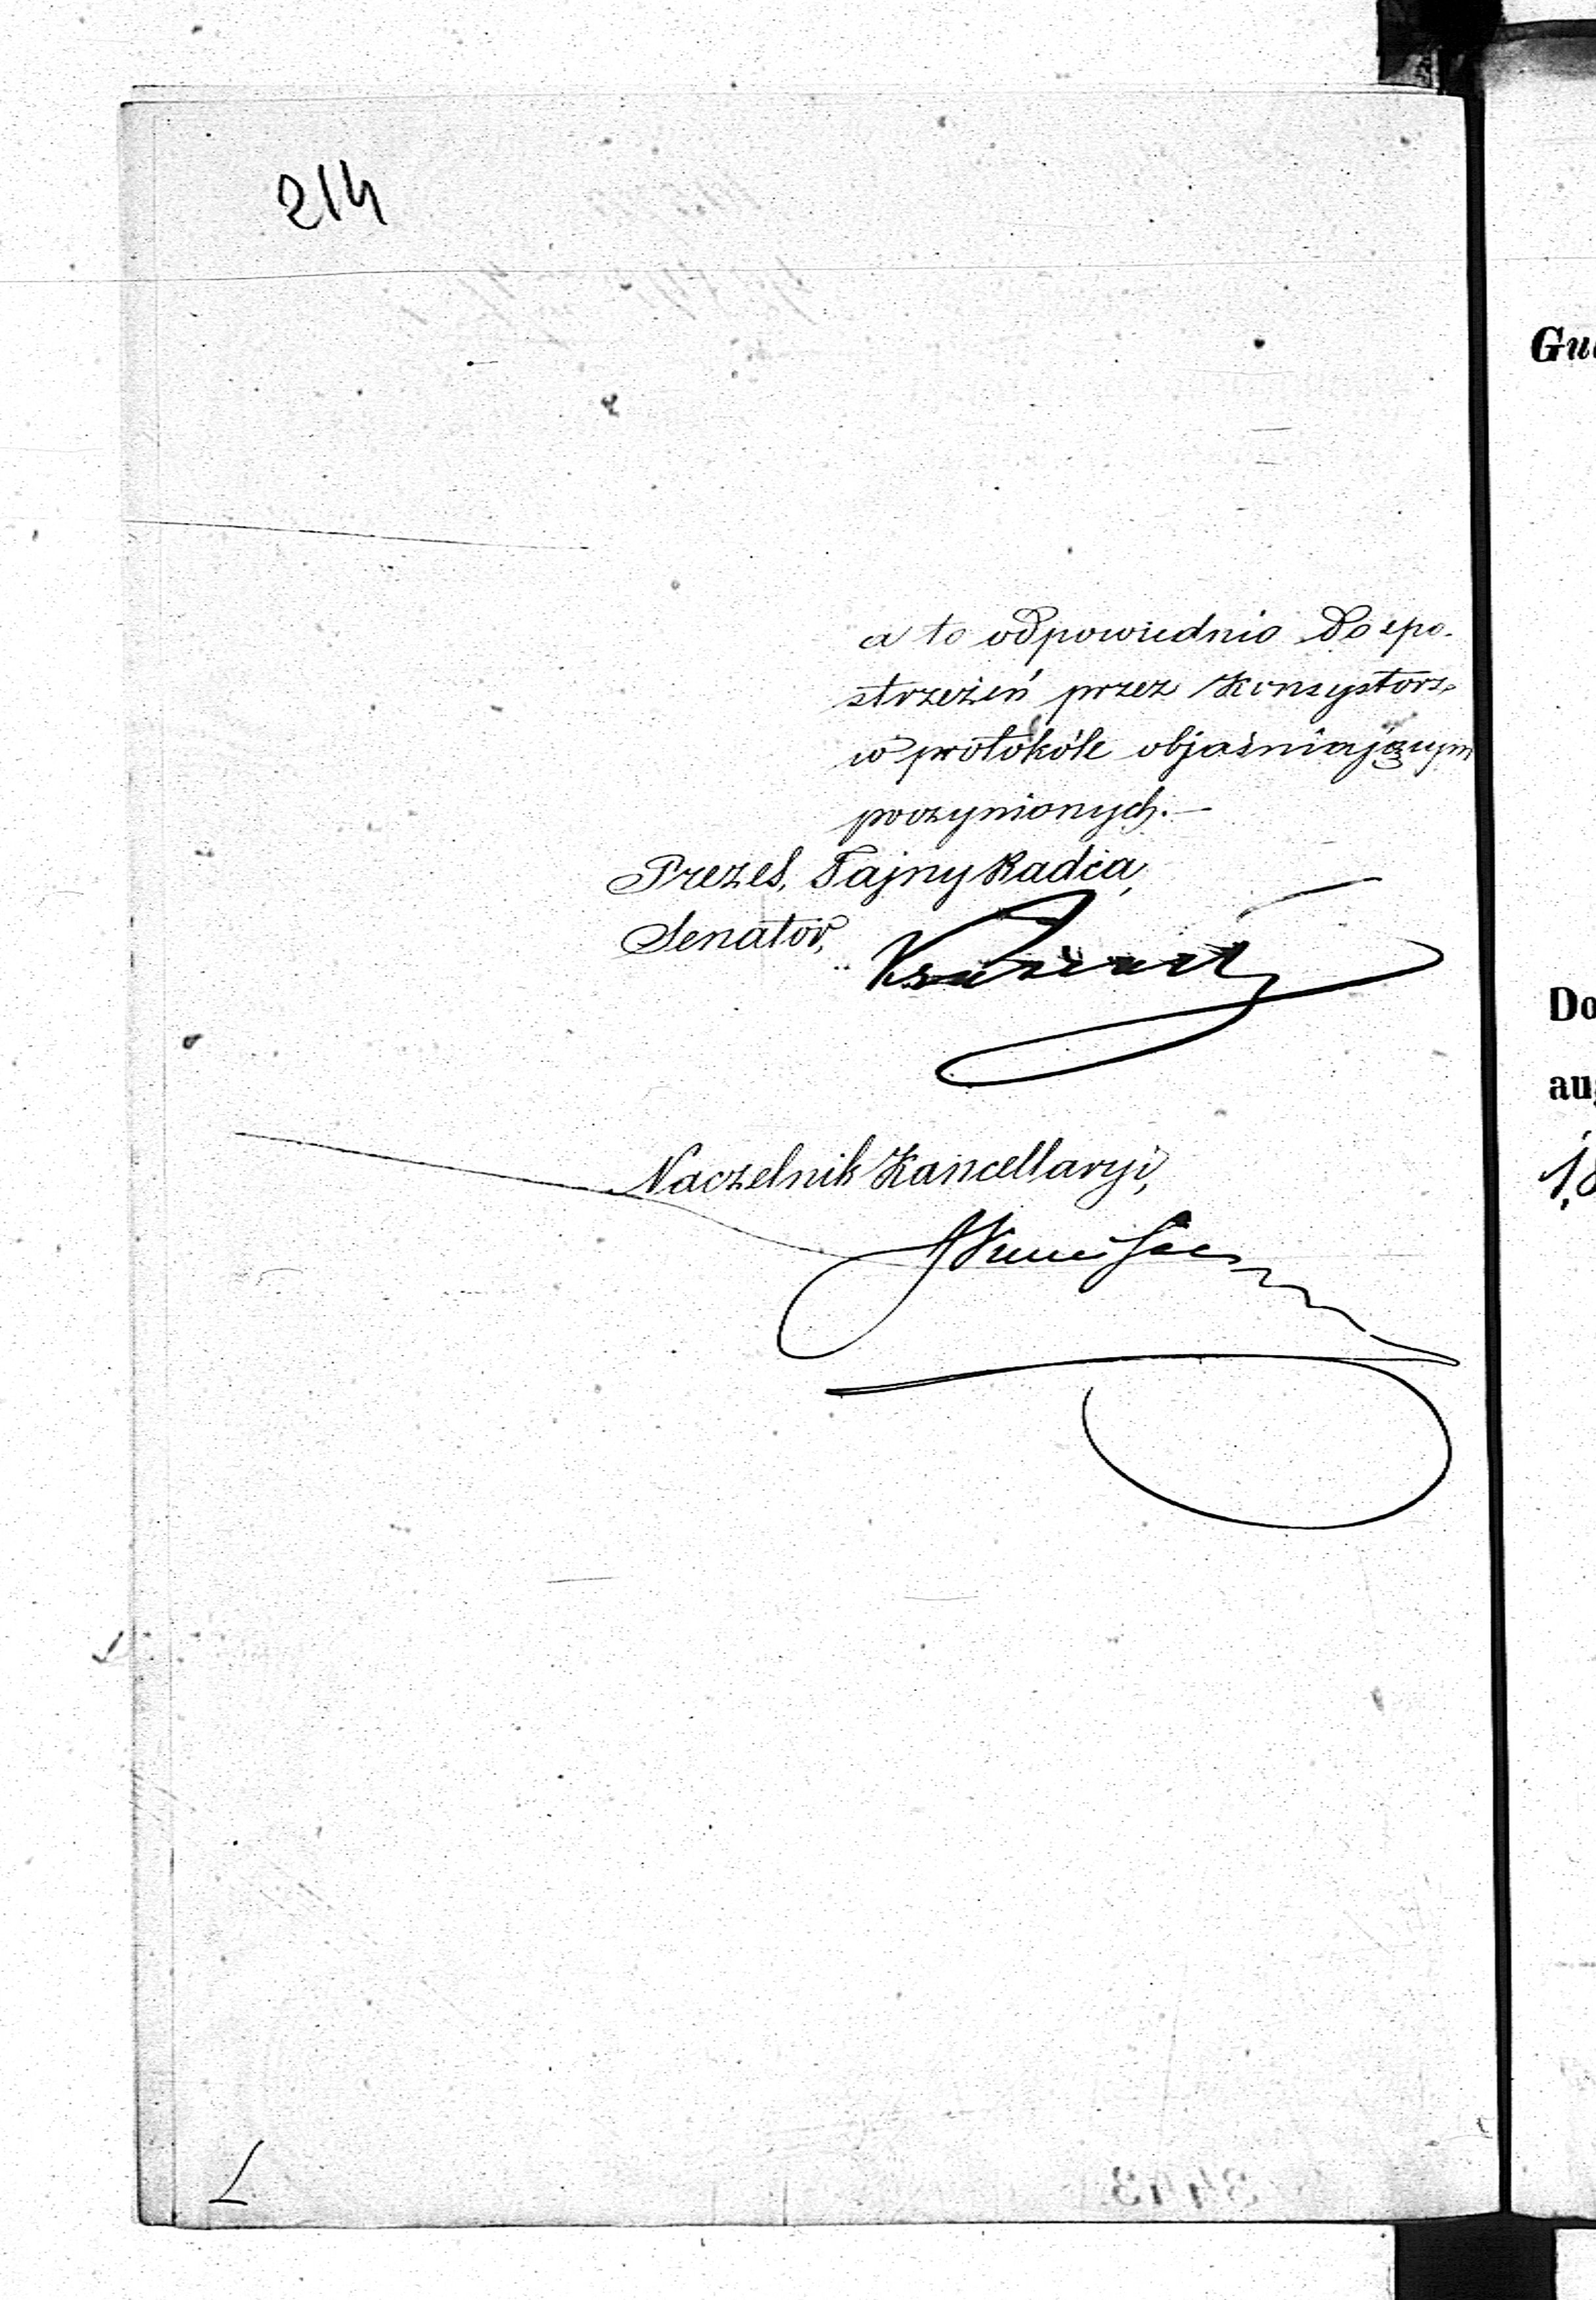 214
a to odpowiednio do spo-
strzeżeń przez Konsystorz
w protokóle objaśniającym
poczynionych.—
Prezes, Tajny Radca,
Senator,
Naczelnik Kancellaryi,
L
Do